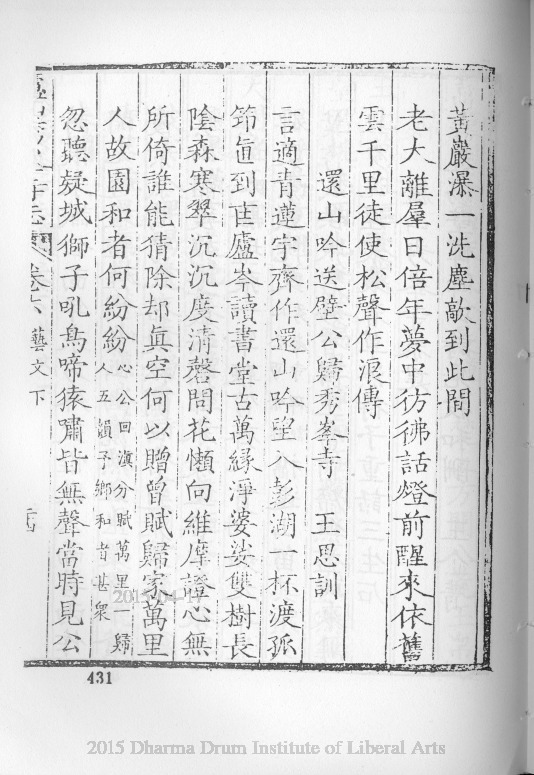 黃巖瀑一洗塵歊到此間
老大離羣日倍年夢中彷彿話燈前醒來依舊
雲千里徒使松聲作浪傳
還山吟送壁公歸秀峯寺　王思訓
言適青蓮宇齊作還山吟望入彭湖一杯渡孤
筇直到匡廬岑讀書堂古萬緣淨婆娑雙樹長
陰森寒翠沉沉度清磬問花懶向維摩證心無
所倚誰能猜除却眞空何以贈曾賦歸家萬里
人故園和者何紛紛心公回滇分賦萬里一歸
人五韻子鄉和者甚衆
忽聽凝城獅子吼鳥啼猿嘯皆無聲當時見公
卷六　藝文下
431
2015 Dharma Drum Institute of Liberal Arts